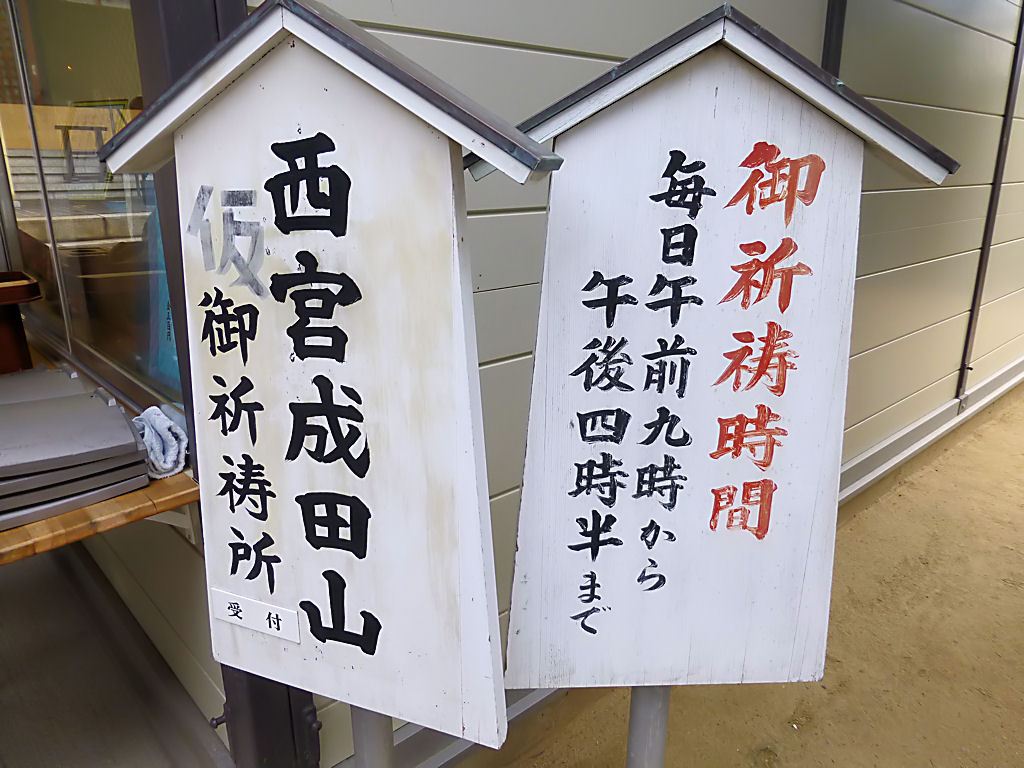 西宮成田山
仮御祈祷所
受付
御祈祷時間
毎日午前九時から
午後四時半まで